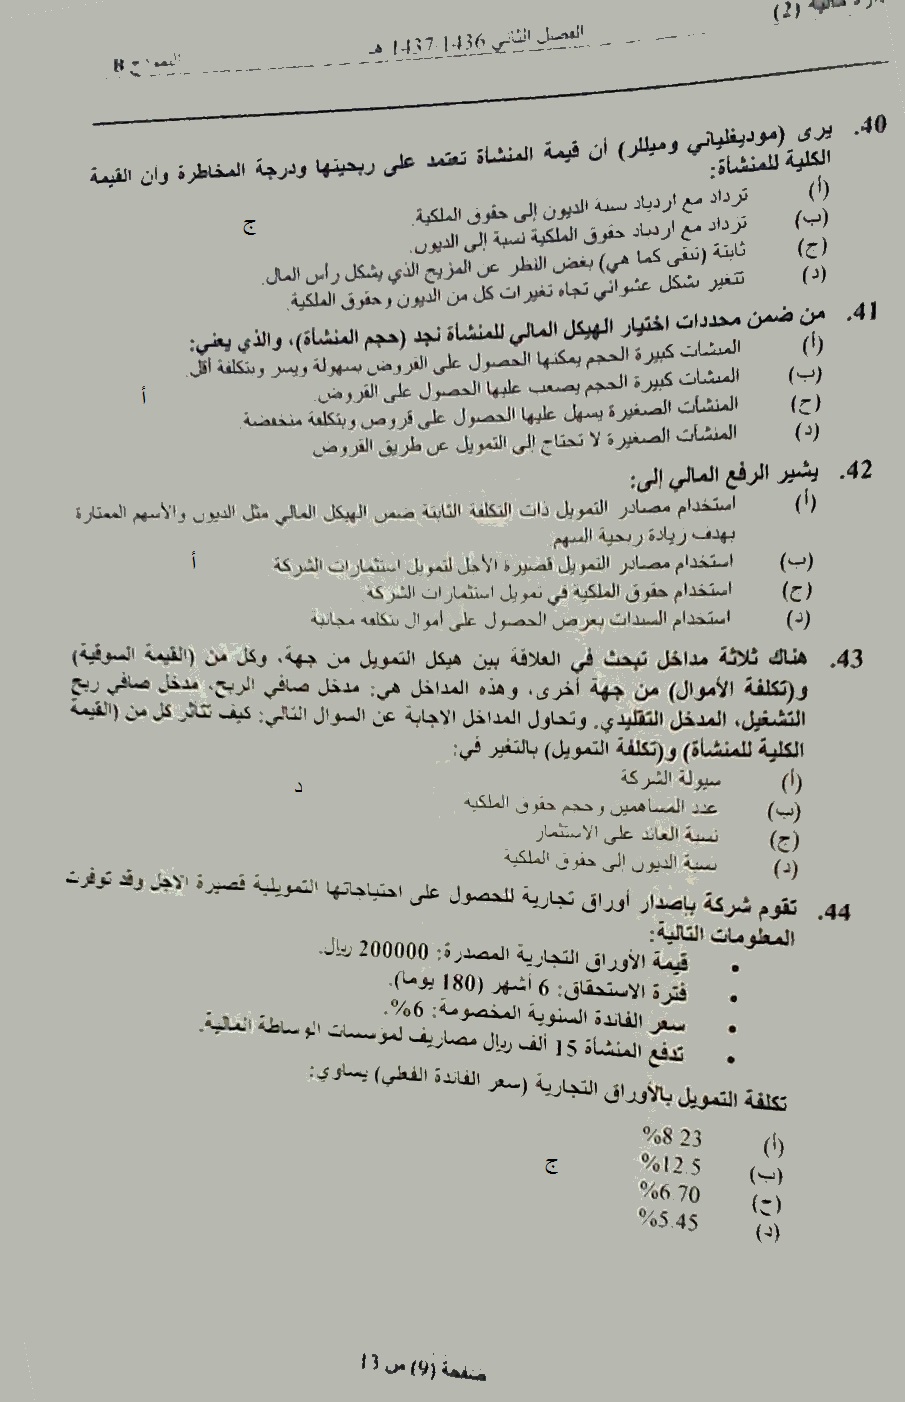 مالية (2)
الفصل الثاني 1436-1437 هـ
النموذج B
40. يرى (موديغلياني وميللر) أن قيمة المنشأة تعتمد على ربحيتها ودرجة المخاطرة وأن القيمة
الكلية للمنشأة:
(أ) تزداد مع ازدياد نسبة الديون إلى حقوق الملكية.
(ب) تزداد مع ازدياد حقوق الملكية نسبة إلى الديون.
ج
(ج) ثابتة (تبقى كما هي) بغض النظر عن المزيج الذي يشكل رأس المال.
(د) تتغير بشكل عشوائي تجاه تغيرات كل من الديون وحقوق الملكية.
41. من ضمن محددات اختيار الهيكل المالي للمنشأة نجد (حجم المنشأة)، والذي يعني:
(أ) المنشآت كبيرة الحجم يمكنها الحصول على القروض بسهولة ويسر وبتكلفة أقل.
(ب) المنشآت كبيرة الحجم يصعب عليها الحصول على القروض.
أ
(ج) المنشآت الصغيرة يسهل عليها الحصول على قروض وبتكلفة منخفضة.
(د) المنشآت الصغيرة لا تحتاج إلى التمويل عن طريق القروض
42. يشير الرفع المالي إلى:
(أ) استخدام مصادر التمويل ذات التكلفة الثابتة ضمن الهيكل المالي مثل الديون والأسهم الممتازة
بهدف زيادة ربحية السهم
(ب) استخدام مصادر التمويل قصيرة الأجل لتمويل استثمارات الشركة
أ
(ج) استخدام حقوق الملكية في تمويل استثمارات الشركة
(د) استخدام السندات بغرض الحصول على أموال بتكلفة مجانية
43. هناك ثلاثة مداخل تبحث في العلاقة بين هيكل التمويل من جهة، وكل من (القيمة السوقية)
و(تكلفة الأموال) من جهة أخرى، وهذه المداخل هي: مدخل صافي الربح، مدخل صافي ربح
التشغيل، المدخل التقليدي. وتحاول المداخل الإجابة عن السؤال التالي: كيف تتأثر كل من (القيمة
الكلية للمنشأة) و(تكلفة التمويل) بالتغير في:
(أ) سيولة الشركة
د
(ب) عدد المساهمين وحجم حقوق الملكية
(ج) نسبة العائد على الاستثمار
(د) نسبة الديون إلى حقوق الملكية
44. تقوم شركة بإصدار أوراق تجارية للحصول على احتياجاتها التمويلية قصيرة الأجل وقد توفرت
المعلومات التالية:
• قيمة الأوراق التجارية المصدرة: 200000 ريال.
• فترة الاستحقاق: 6 أشهر (180 يوما).
• سعر الفائدة السنوية المخصومة: 6%.
• تدفع المنشأة 15 ألف ريال مصاريف لمؤسسات الوساطة المالية.
تكلفة التمويل بالأوراق التجارية (سعر الفائدة الفعلي) يساوي:
(أ) 8.23%
(ب) 12.5%
ج
(ج) 6.70%
(د) 5.45%
صفحة (9) من 13